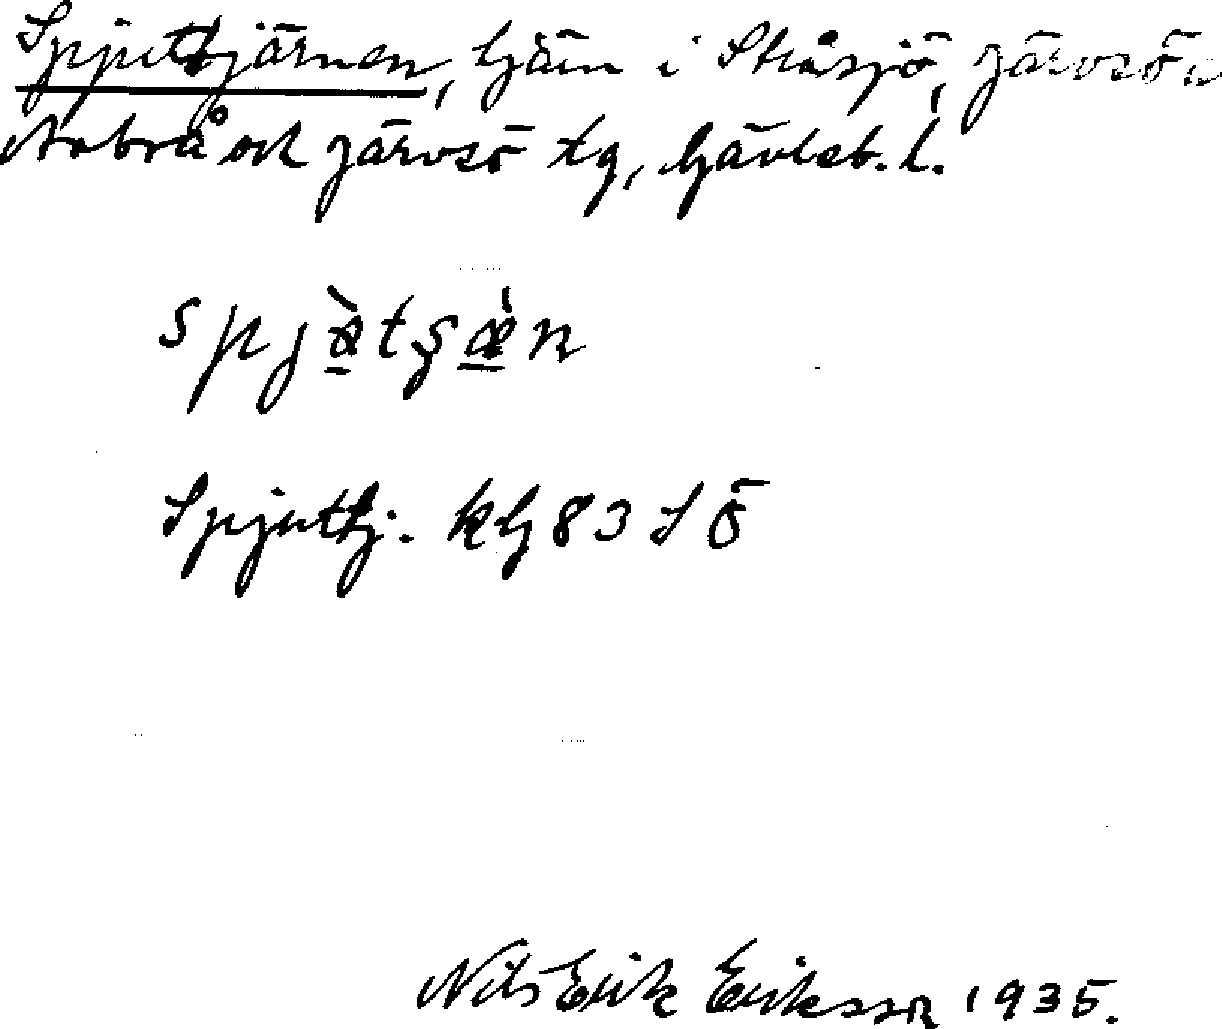 Spjuttjärnen, tjärn i Skåsjö, Järvsö,
Arbrå och Järvsö tg, Gävleb. l.
spjætsæn
Spjuttj. kG 83 S Ö
Nils Erik Eriksson 1935.